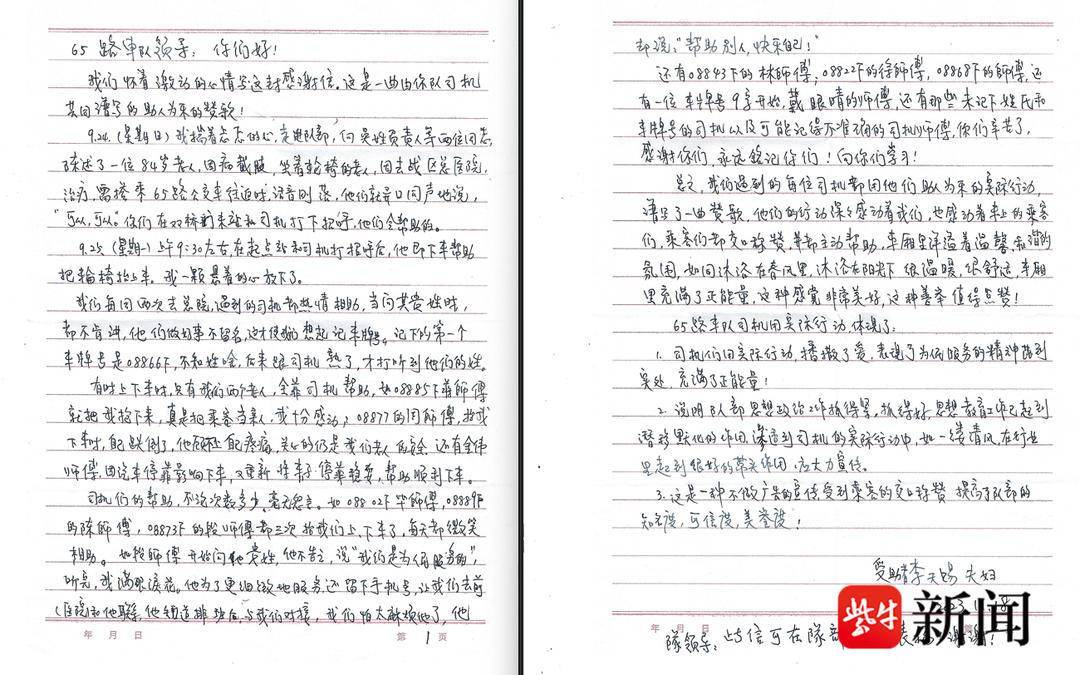 65路车队领导：你们好！
我们怀着激动的心情写这封感谢信。这是一曲由你队司机
共同谱写的助人为乐的赞歌！
9.24.（星期日）我揣着忐忑的心，走进队部，向吴姓负责人等两位同志
陈述了一位84岁老人，因病截肢，坐着轮椅的老人，因去战区总医院，
治疗，需搭乘65路公交车往返时，话音刚落，他们就异口同声地说，
“可以，可以。”你们在双桥新村站和司机打下招呼，他们会帮助的。
9.25（星期一）上午9:30左右，在起点站和司机打招呼后，他即下车帮助
把轮椅抬上车。我一颗悬着的心放下了。
我们每周两次去总院，遇到的司机都热情相助，当问其贵姓时，
都不肯讲，他们做好事不留名，这才使我们想起记车牌号。记下的第一个
车牌号是08866下，不知姓啥，后来跟司机熟了，才打听到他们的姓。
有时上下车时，只有我们两个老人，全靠司机帮助，如08885下肖師傅
就把我抬下来，真是把乘客当亲人，我十分感动；08877的周師傅，抬我
下车时，自己跌倒了，他顾不上自己疼痛，关心的仍是我们老人的安全，还有金伟
师傅，因汽车停靠影响下来，又重新将车子停靠稳妥，帮助顺利下车。
司机们的帮助，不论次数多少，毫无怨言。如08802下毕師傅，08889下
的陈師傅，08873下的段师傅都三次抬我们上、下车了，每天都微笑
相助。如段師傅开始问他贵姓，他不告之，说“我们是为人民服务的”，
听完，我满眼泪花。他为了更细致地服务，还留下手机号，让我们去前
（医院）和他联系，他知道排班后，与我们对接，我们怕太麻烦他了，他
年 月 日 第 1 页
却说：“帮助别人，快乐自己！”
还有08843下的林師傅，08822下的徐師傅，08868下的師傅，还
有一位车牌号9字开始，戴眼睛的师傅，还有那些未记下姓氏和
车牌号的司机以及可能记得不准确的司机师傅，你们辛苦了，
感谢你们，永远铭记你们！向你们学习！
总之，我们遇到的每位司机都用他们助人为乐的实际行动，
谱写了一曲赞歌。他们的行动深深感动着我们，也感动着车上的乘客
们，乘客们都交口称赞，并都主动帮助，车厢里洋溢着温馨、和谐的
氛围，如同沐浴在春风里，沐浴在阳光下，很温暖，很舒适，车厢
里充满了正能量，这种感觉非常美好，这种善举值得点赞！
65路车队司机用实际行动，体现了：
1. 司机们用实际行动，播撒了爱，表现了为人民服务的精神落到
实处，充满了正能量！
2. 说明队部思想政治工作抓得紧，抓得好，思想教育工作已起到
潜移默化的作用，渗透到司机的实际行动中，如一缕清风，在行业
里起到很好的带头作用，应大力宣传。
3. 这是一种不做广告的宣传受到乘客的交口称赞，提高了队部的
知名度，可信度，美誉度！
受助者李天锡夫妇
年 月 日
隊领导：此信可在隊部 表 谢谢！
紫牛新闻